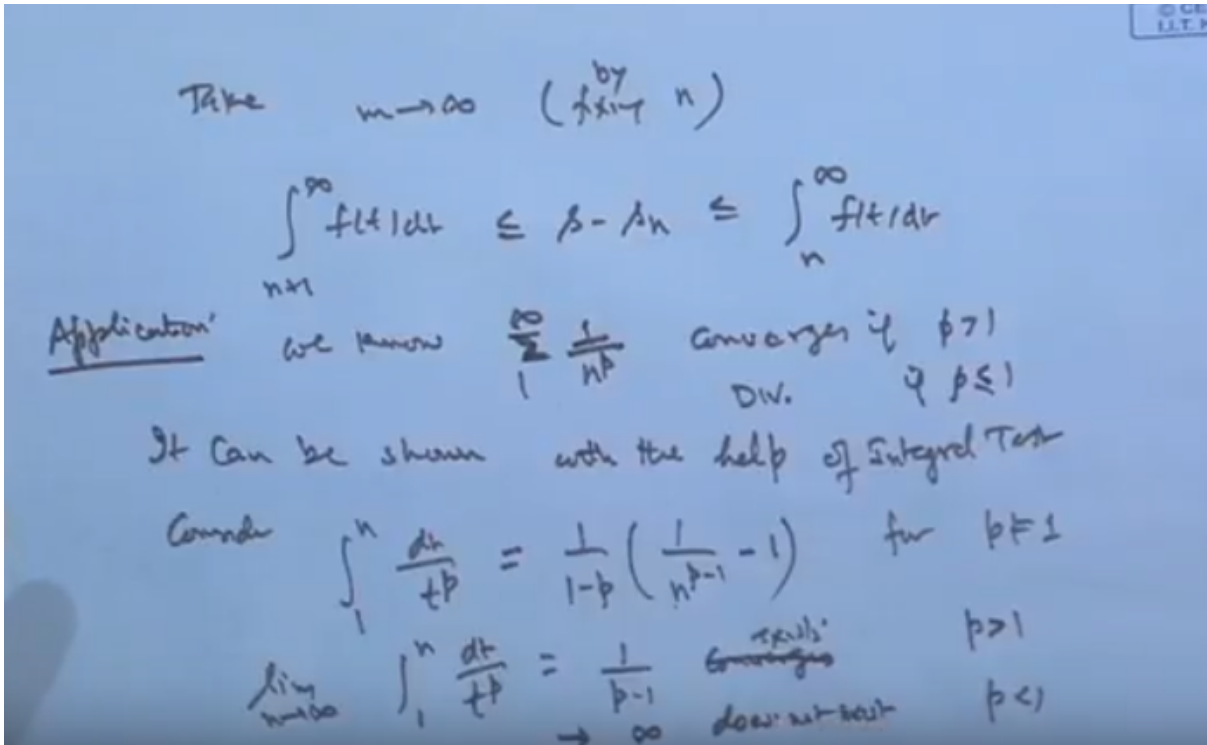 © CE
I.I.T. K
Take m→∞ (by fixing n)
∫_{n+1}^∞ f(t)dt ≤ s - s_n ≤ ∫_n^∞ f(t)dt
Application: we know ∑_1^∞ 1/n^p Converges if p>1
Div. if p≤1
It can be shown with the help of Integral Test
Consider ∫_1^n dt/t^p = 1/(1-p) (1/n^{p-1} - 1) for p≠1
lim_{n→∞} ∫_1^n dt/t^p = 1/(p-1) exists p>1
→ ∞ does not exist p<1